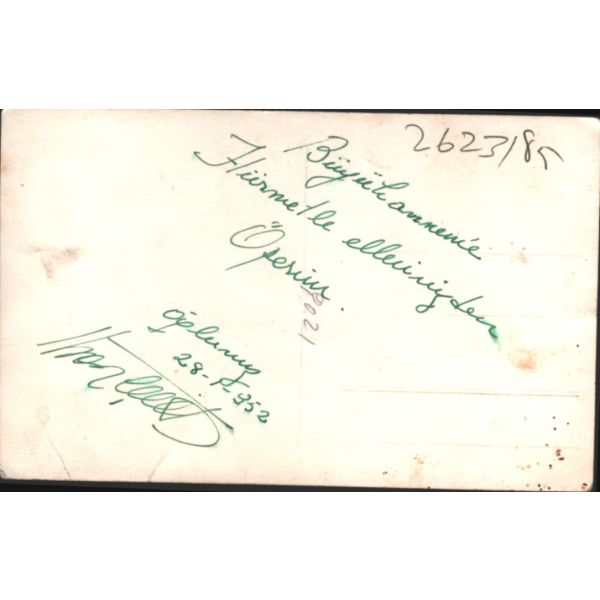 2623/85
Büyükannene
Hürmetle ellerinizden
Öperim.
2021
Oğlunuz
28-5-952